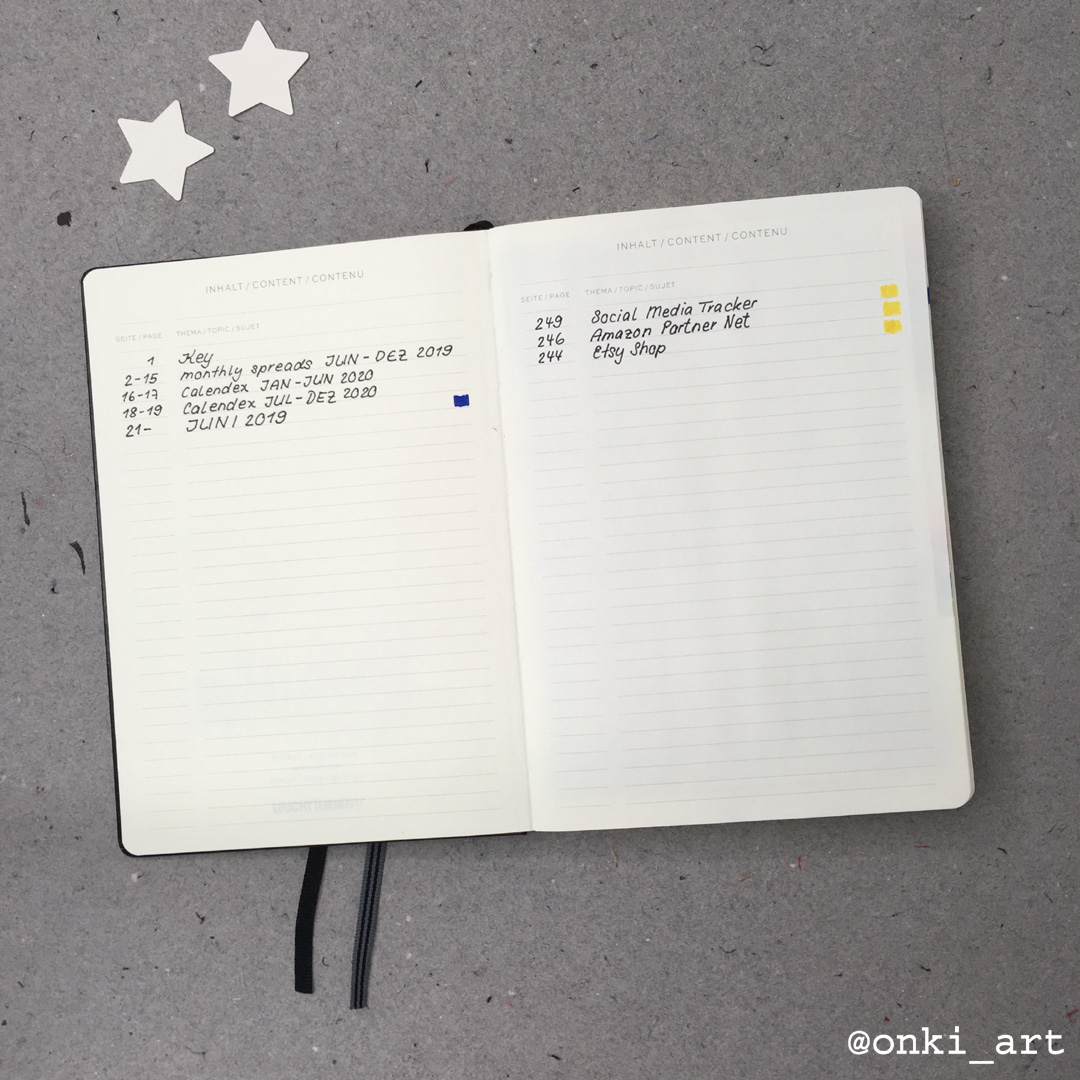 INHALT / CONTENT / CONTENU
SEITE / PAGE THEMA / TOPIC / SUJET
1 Key
2-15 monthly spreads JUN - DEZ 2019
16-17 Calendex JAN - JUN 2020
18-19 Calendex JUL - DEZ 2020
21- JUNI 2019
INHALT / CONTENT / CONTENU
SEITE / PAGE THEMA / TOPIC / SUJET
249 Social Media Tracker
246 Amazon Partner Net
244 Etsy Shop
@onki_art